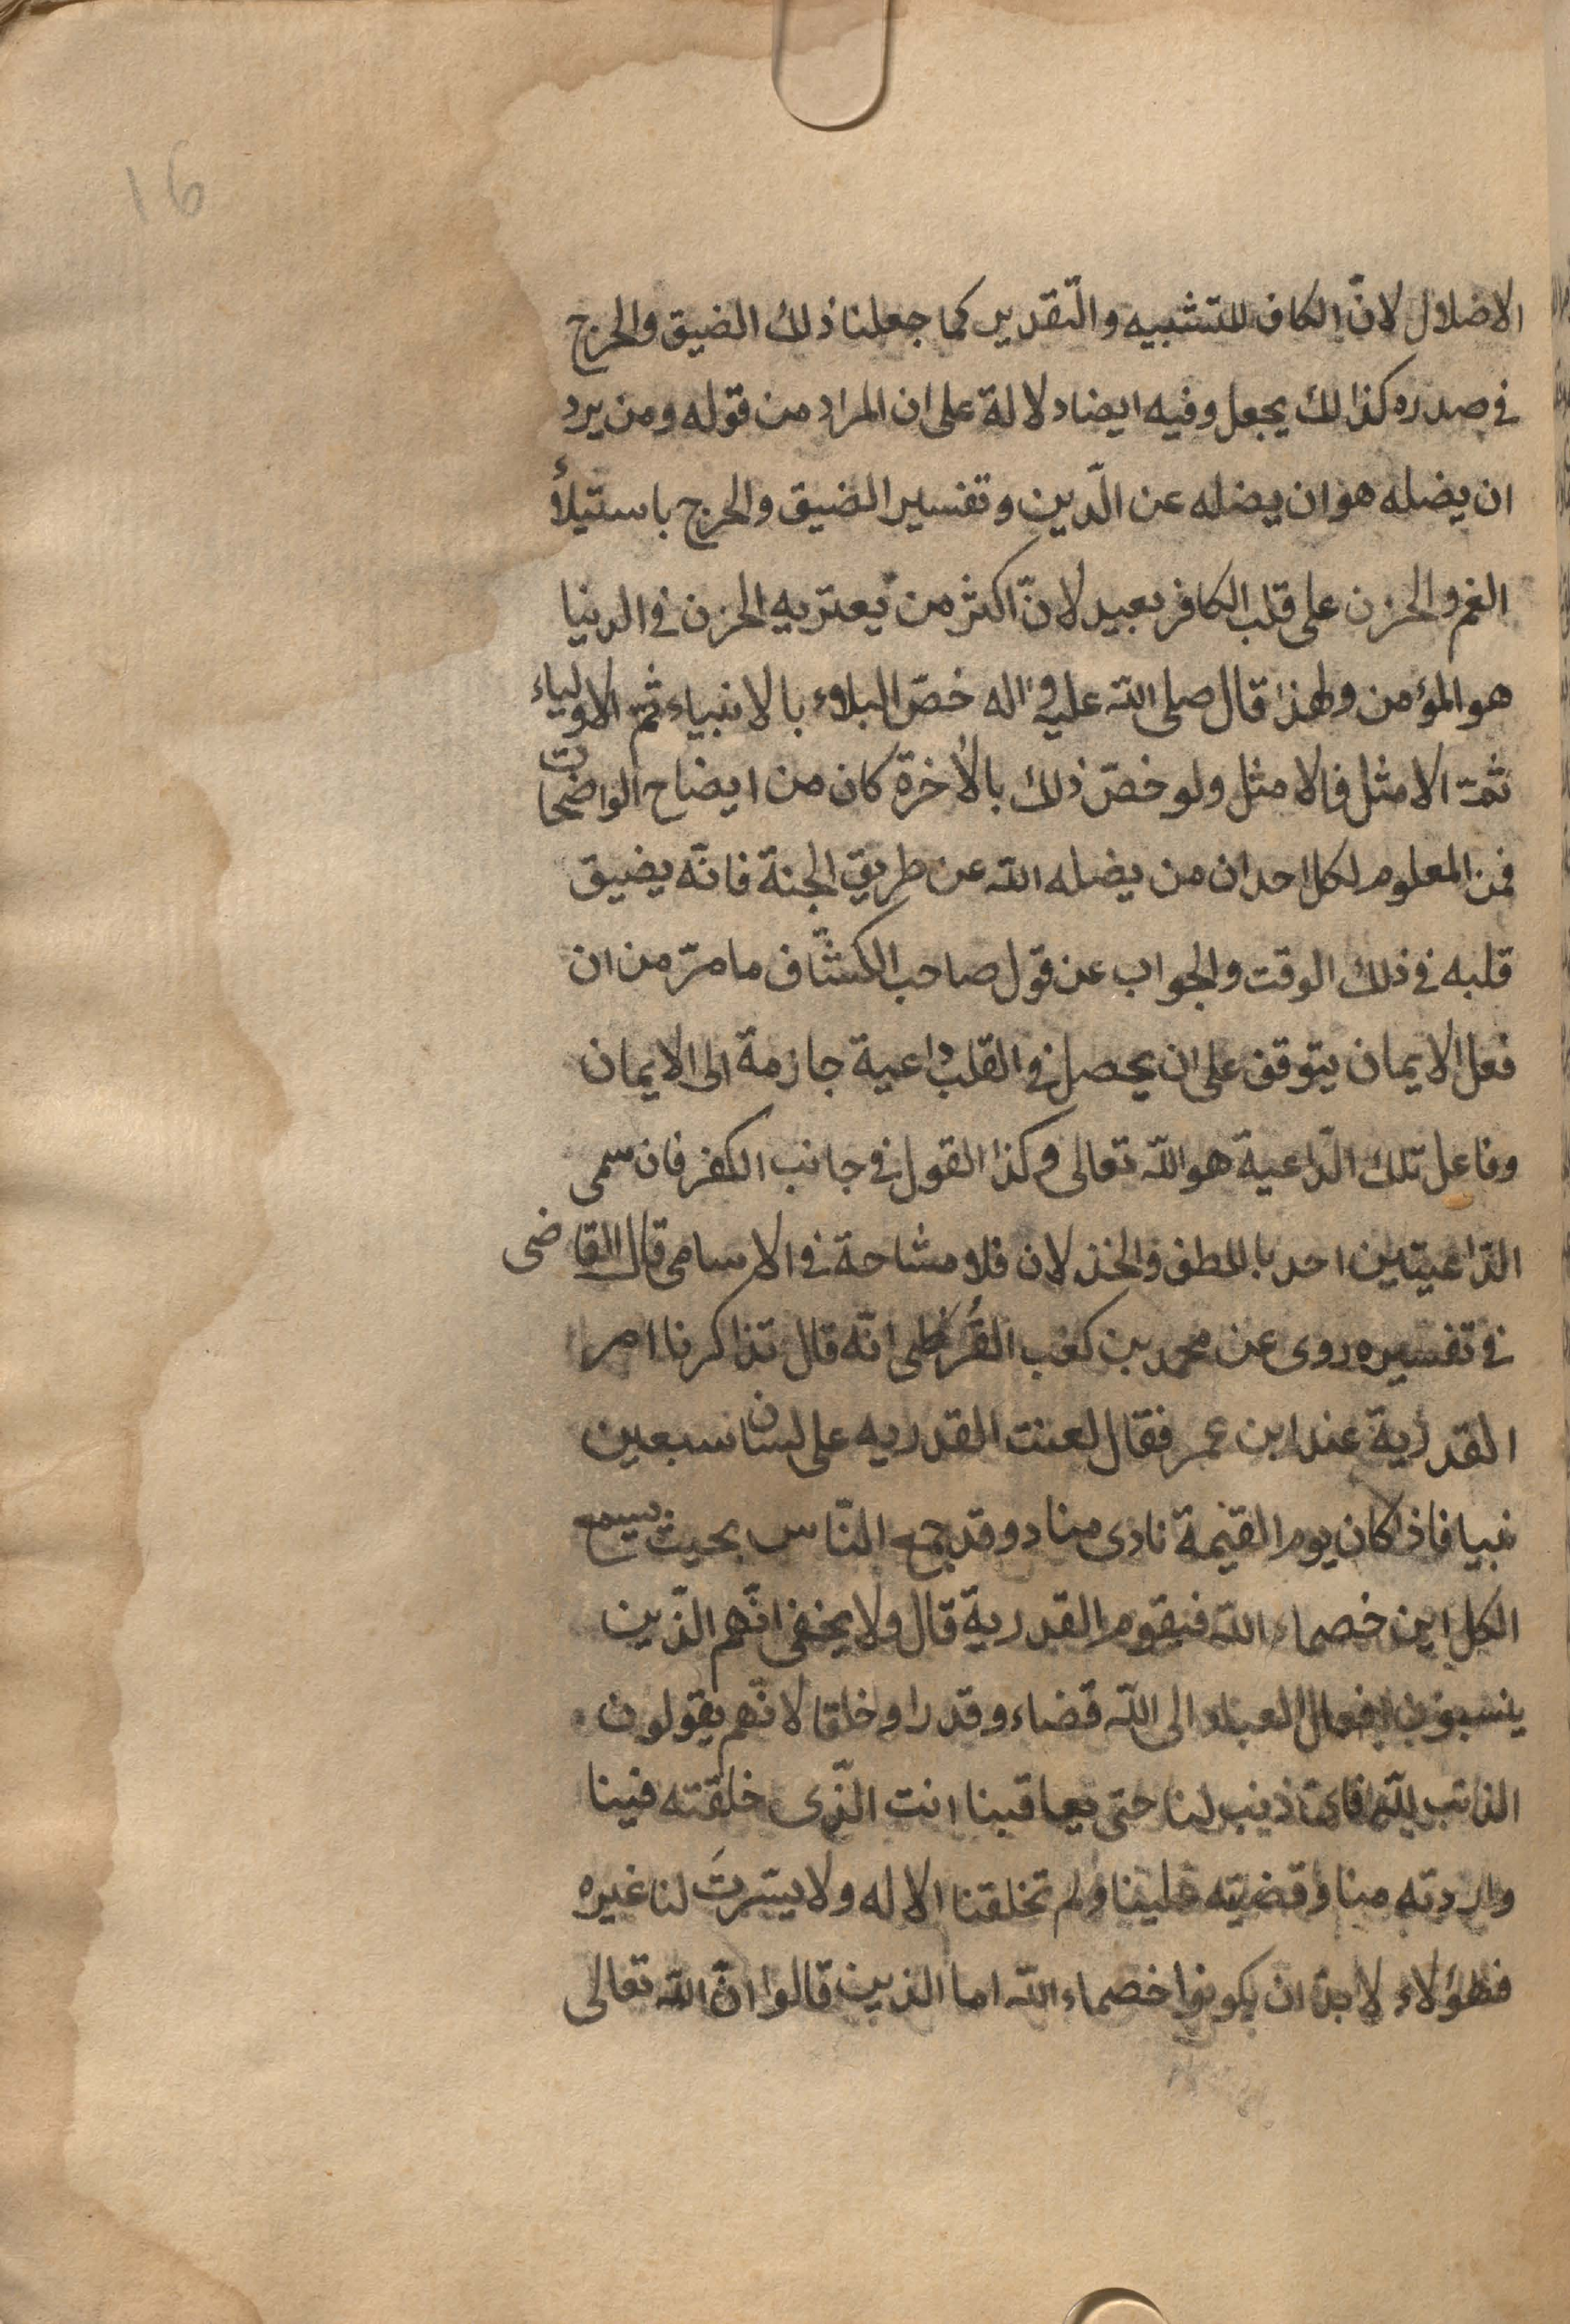 16
الاضلال لانّ الكاف للتشبيه والتّقدير كما جعلنا ذلك الضيق والحرج
فى صدره كذالك يجعل وفيه ايضا دلالة على ان المراد من قوله ومن يرد
ان يضله هو ان يضله عن الّدين وتفسير الضيق والحرج باستيلأ
الغم والحزن على قلب الكافر بعيد لانّ اكثر من يعتريه الحزن فى الدنيا
هو المؤمن ولهذا قال صلى الله عليه واله خصّ البلاء بالانبياء ثم الاولياء
ثمّ الامثل فالامثل ولو خصّ ذلك بالأخرة كان من ايضاح الواضحات
فمن المعلوم لكل احد ان من يضله الله عن طريق الجنة فانّه يضيق
قلبه فى ذلك الوقت والجواب عن قول صاحب الكشّاف ما مرّ من ان
فعل الايمان يتوقف على ان يحصل فى القلب داعية جازمة الى الايمان
وفاعل تلك الّداعية هو الله تعالى وكذا القول فى جانب الكفر فان سمى
الدّاعيتين احد باللطف والخذلان فلا مشاحة فى الاسامى قال القاضى
فى تفسيره روى عن محمد بن كعب القُرظى انّه قال تذاكرنا امر
القدرية عند ابن عمر فقال لعنت القدريه على لسان سبعين
نبيا فاذا كان يوم القيمة نادى مناد وقد جمع النّاس بحيث يسمع
الكل اين خصماء الله فيقوم القدرية قال ولا يخفى انّهم الذّين
ينسبون افعال العباد الى الله قضاء وقدرا وخلقا لانّهم يقولون
الذنب لله فاىّ ذنب لنا حتى يعاقبنا انت الذّى خلقته فينا
واردته منا وقضيته علينا ولم تخلقنا الا له ولا يسّرتَ لنا غيره
فهؤلاء لا بدّ ان يكونوا خصماء الله اما الذين قالوا انّ الله تعالى